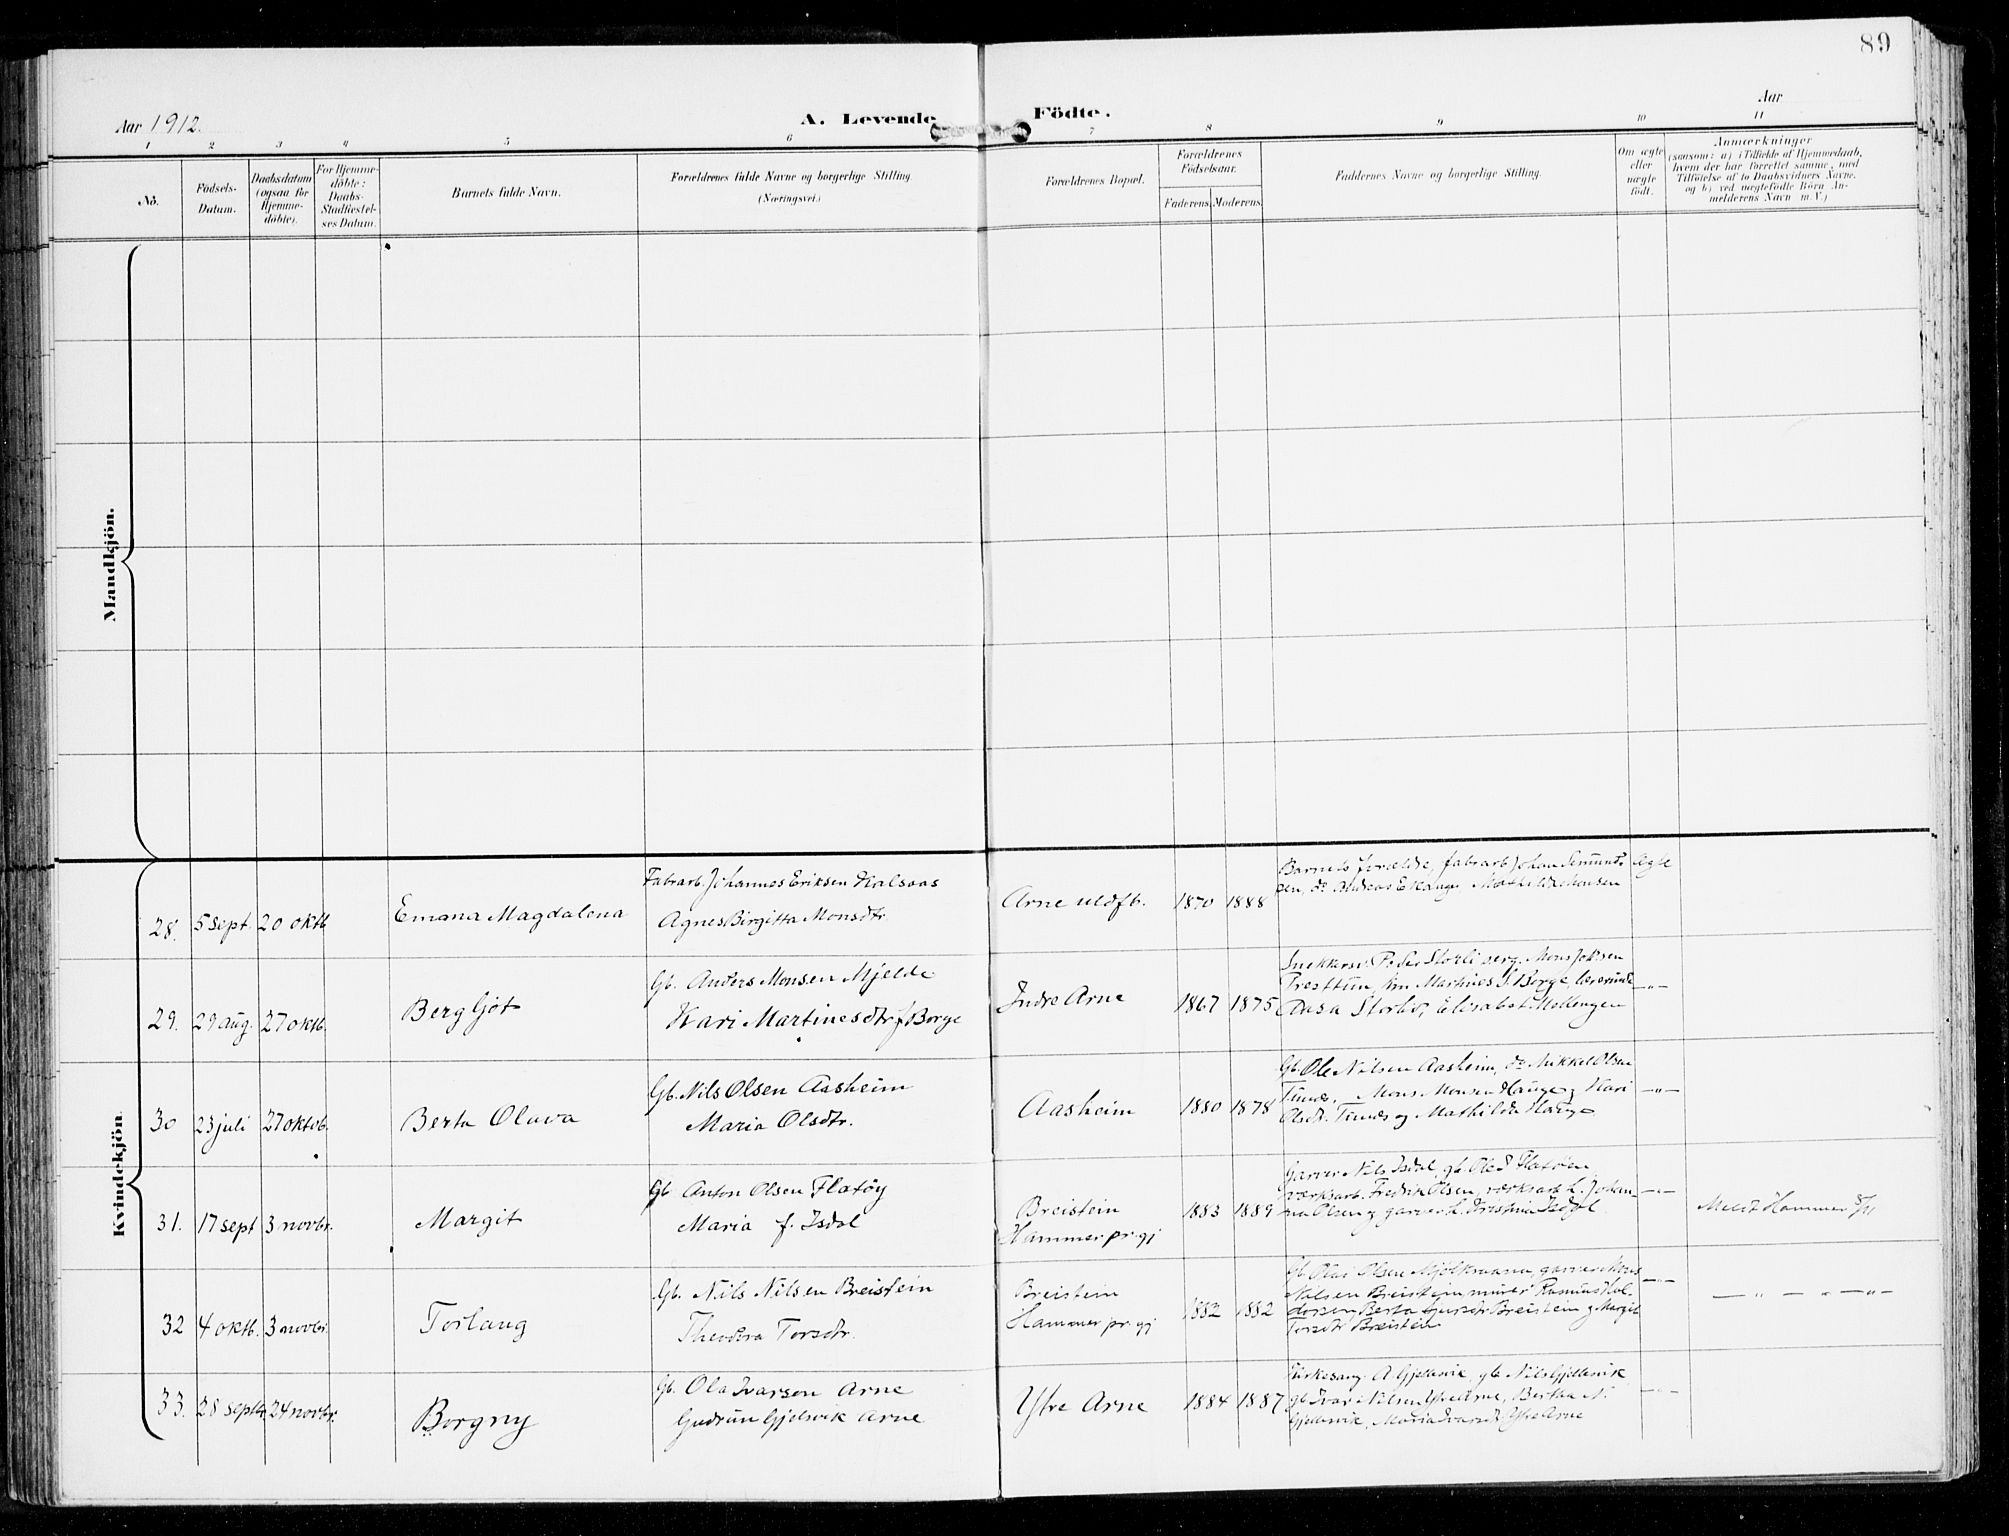 89
Aar 1912.
A. Levende Födte.
Aar
1 2 3 4 5 6 7 8 9 10 11
No.
Födsels-
Datum.
Daabsdatum
(ogsaa for
Hjemme-
döbte).
For Hjemme-
döbte:
Daabs-
Stadfæstel-
ses Datum.
Barnets fulde Navn.
Forældrenes fulde Navne og borgerlige Stilling.
(Næringsvei.)
Forældrenes Bopæl.
Forældrenes
Födselsaar.
Faderens. Moderens.
Faddernes Navne og borgerlige Stilling.
Om ægte
eller
uægte
födt.
Anmærkninger
(saasom: a) i Tilfælde af Hjemmedaab,
hvem der har forrettet samme, med
Tilföielse af to Daabsvidners Navne,
og b) ved uægtefödte Börn An-
melderens Navn m. V.)
Mandkjön.
Kvindekjön
28. 5 sept. 20 oktb
Emma Magdalena
Fabrarb. Johannes Eriksen Kalsaas
Agnes Birgitta Monsdtr.
Arne uldfb. 1870 1888
Barnets forældre, fabrarb Johan
do Andreas
Ægte
29. 29 aug. 27 oktb.
Bergljot
Gb. Anders Monsen Mjelde
Kari Martinesdtr f Borge
Indre Arne 1867 1875
Peder Storli serg. Mons
Presttun, Martines S. Borge, lærerinde
Aasa Storli, Elisabet
—"—
30 23 juli 27 oktob.
Berta Olava
Gb. Nils Olsen Aasheim
Maria Olsdtr.
Aasheim 1880 1878
Gb. Ole Nilsen Aasheim, do Mikkel Olsen
Tunes, Mons Monsen Hauge og Kari
Olsdt. Tunes og Mathilda Hauge
—"—
31. 17 sept 3 novbr.
Margit
Gb Anton Olsen Flatøy
Maria f. Isdal
Breistein
Hammer pr.gj
1883 1889
Garver Nils Isdal, gb. Ole Flatøen
værksarb. Fredrik Olsen, værksarb h. Johan-
na Olsen og garver h. Kristina Isdal
—"—
Meldt Hammer
32 4 oktb. 3 novbr.
Torlaug
Gb. Nils Nilsen Breistein
Theodora Torsdtr.
Breistein
Hammer pr.gj
1882 1882
Gb. Olai Olsen garver
Nilsen Breistein, murer Rasmus Hal-
dorsen Berta Breistein og Margit
Torsdtr Breistein
—"—
— " — " — " —
33. 28 septbr 24 novbr.
Borgny
Gb. Ola Ivarson Arne
Gudrun Gjelsvik Arne
Ytre Arne 1884 1887
Kirkesang. A Gjelsvik, gb Nils Gjellesvik
gb Ivar Nilsen Ytre Arne, Bertha N.
Gjelsvik, Maria Ivarsdt Ytre Arne
—"—